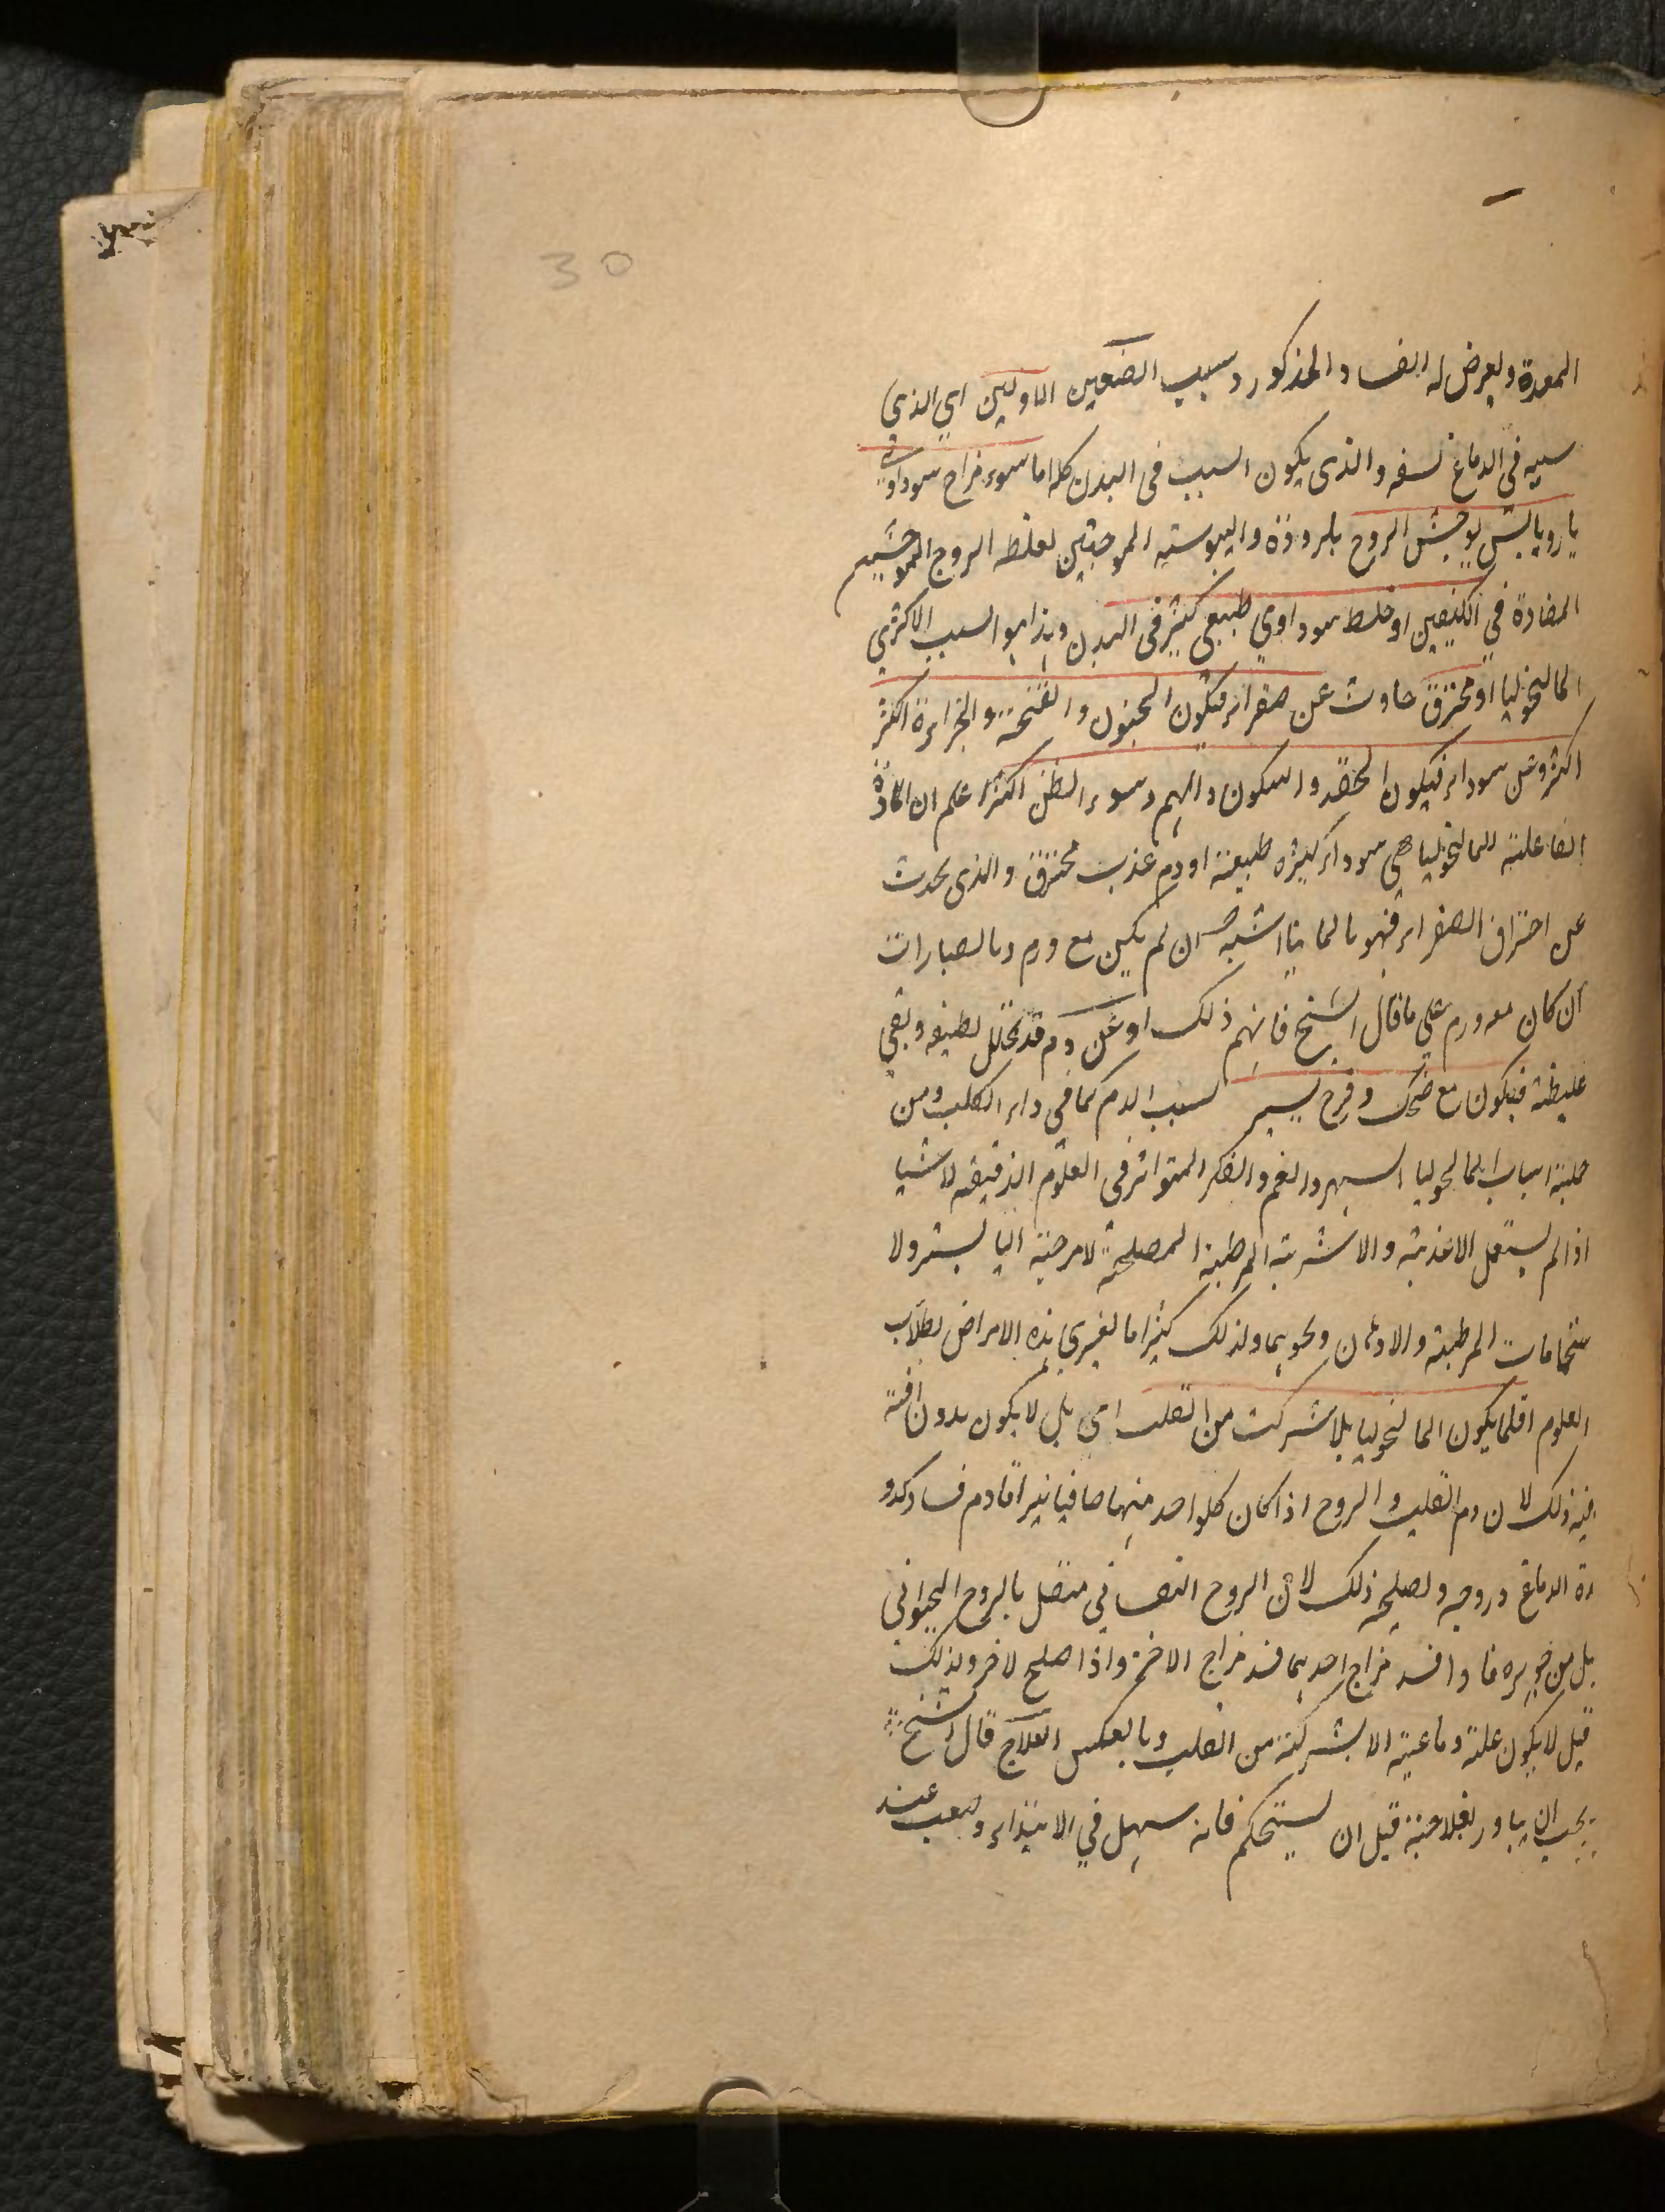 30
المعدة ويعرض له الفساد المذكور وسبب الصنفين الاولين اي الذي
سببه في الدماغ نفسه والذي يكون السبب في البدن كله اما سوء مزاج سوداوي
بارد يابس يوحش الروح بالبرودة واليبوسة الموجبتين لغلظ الروح الموحشتين
المضادة في الكيفيتين او خلط سوداوي طبيعي كثير في البدن وهذا هو السبب الاكثري
للمالنخوليا او محترق حادث عن صفراء فيكون الجنون والقحة والجراءة اكثر
اكثر وعن سوداء فيكون الحقد والسكون والهم وسوء الظن اكثر اعلم ان المادة
الفاعلية للمالنخوليا هي سوداء كثيرة طبيعية او دم عذب محترق والذي يحدث
عن احتراق الصفراء فهو بالمانيا اشبه ان لم يكن مع ورم وبالصبارات
ان كان مع ورم على ما قال الشيخ فافهم ذلك او عن دم قد تحلل لطيفه وبقي
غليظه فيكون مع ضحك وفرح يسير لسبب الدم كما في داء الكلب ومن
جلبة اسباب المالنحوليا السهر والغم والفكر المتواتر في العلوم الدقيقه لا شيا
اذا لم يستعمل الاغذية والاشربة المرطبة المصلحة لامزجة اليابسة ولا
ستحمامات المرطبة والادهان ونحوهما ولذلك كثيرا ما يعتري هذه الامراض لطلاب
العلوم اقلما يكون المالنخوليا بلا شركت من القلب اي بل لا يكون بدون افته
فيه وذلك لان دم القلب والروح اذا كان كل واحد منهما صافيا نيرا قاوم فساد كدو
رة الدماغ وروحه ولصلحه ذلك لان الروح النفساني متصل بالروح الحيواني
بل من جوهره فاذا فسد مزاج احدهما فسد مزاج الاخر واذا صلح لاخر ولذلك
قيل لا يكون علة دماغية الا بشركة من القلب وبالعكس العلاج قال الشيخ
يجب ان يبادر بعلاجه قبل ان يستحكم فانه سهل في الابتداء وصعب عند